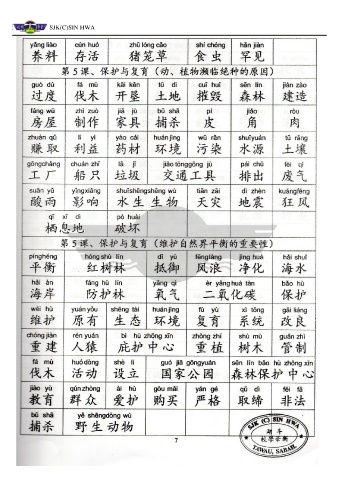 SJK(C)SIN HWA
yǎng liào cún huó zhū lóng cǎo shí chóng hǎn jiàn
养料 存活 猪笼草 食虫 罕见
第5课、保护与复育（动、植物濒临绝种的原因）
guò dù fá mù kāi kěn tǔ dì cuī huǐ sēn lín jiàn zào
过度 伐木 开垦 土地 摧毁 森林 建造
fáng wū zhì zuò jiā jù bǔ shā pí jiǎo ròu
房屋 制作 家具 捕杀 皮 角 肉
zhuàn qǔ lì yì yào cái huán jìng wū rǎn shuǐ yuán tǔ rǎng
赚取 利益 药材 环境 污染 水源 土壤
gōng chǎng chuán zhī lā jī jiāo tōng gōng jù pái chū fèi qì
工厂 船只 垃圾 交通工具 排出 废气
suān yǔ yǐng xiǎng shuǐ shēng shēng wù tiān zāi dì zhèn kuáng fēng
酸雨 影响 水生生物 天灾 地震 狂风
qī xī dì pò huài
栖息地 破坏
第5课、保护与复育（维护自然界平衡的重要性）
píng héng hóng shù lín dǐ yù fēng làng jìng huà hǎi shuǐ
平衡 红树林 抵御 风浪 净化 海水
hǎi àn fáng hù lín yǎng qì èr yǎng huà tàn bǎo hù
海岸 防护林 氧气 二氧化碳 保护
wéi hù yuán yǒu shēng tài huán jìng fù yù xì tǒng gǎi liáng
维护 原有 生态 环境 复育 系统 改良
chóng jiàn rén yuán bì hù zhōng xīn chóng zhí shù mù guǎn zhì
重建 人猿 庇护中心 重植 树木 管制
fá mù huó dòng shè lì guó jiā gōng yuán sēn lín bǎo hù zhōng xīn
伐木 活动 设立 国家公园 森林保护中心
jiào yù qún zhòng ài hù gòu mǎi yán gé qǔ dì fēi fǎ
教育 群众 爱护 购买 严格 取缔 非法
bǔ shā yě shēng dòng wù
捕杀 野生动物
7
SJK (C) SIN HWA
TAWAU, SABAH.